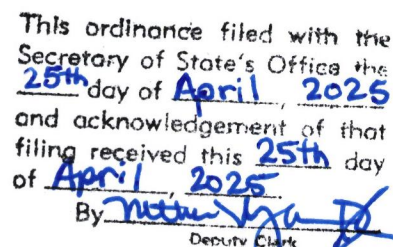 This ordinance filed with the
Secretary of State's Office the
25th day of April, 2025
and acknowledgement of that
filing received this 25th day
of April, 2025
By
Deputy Clerk